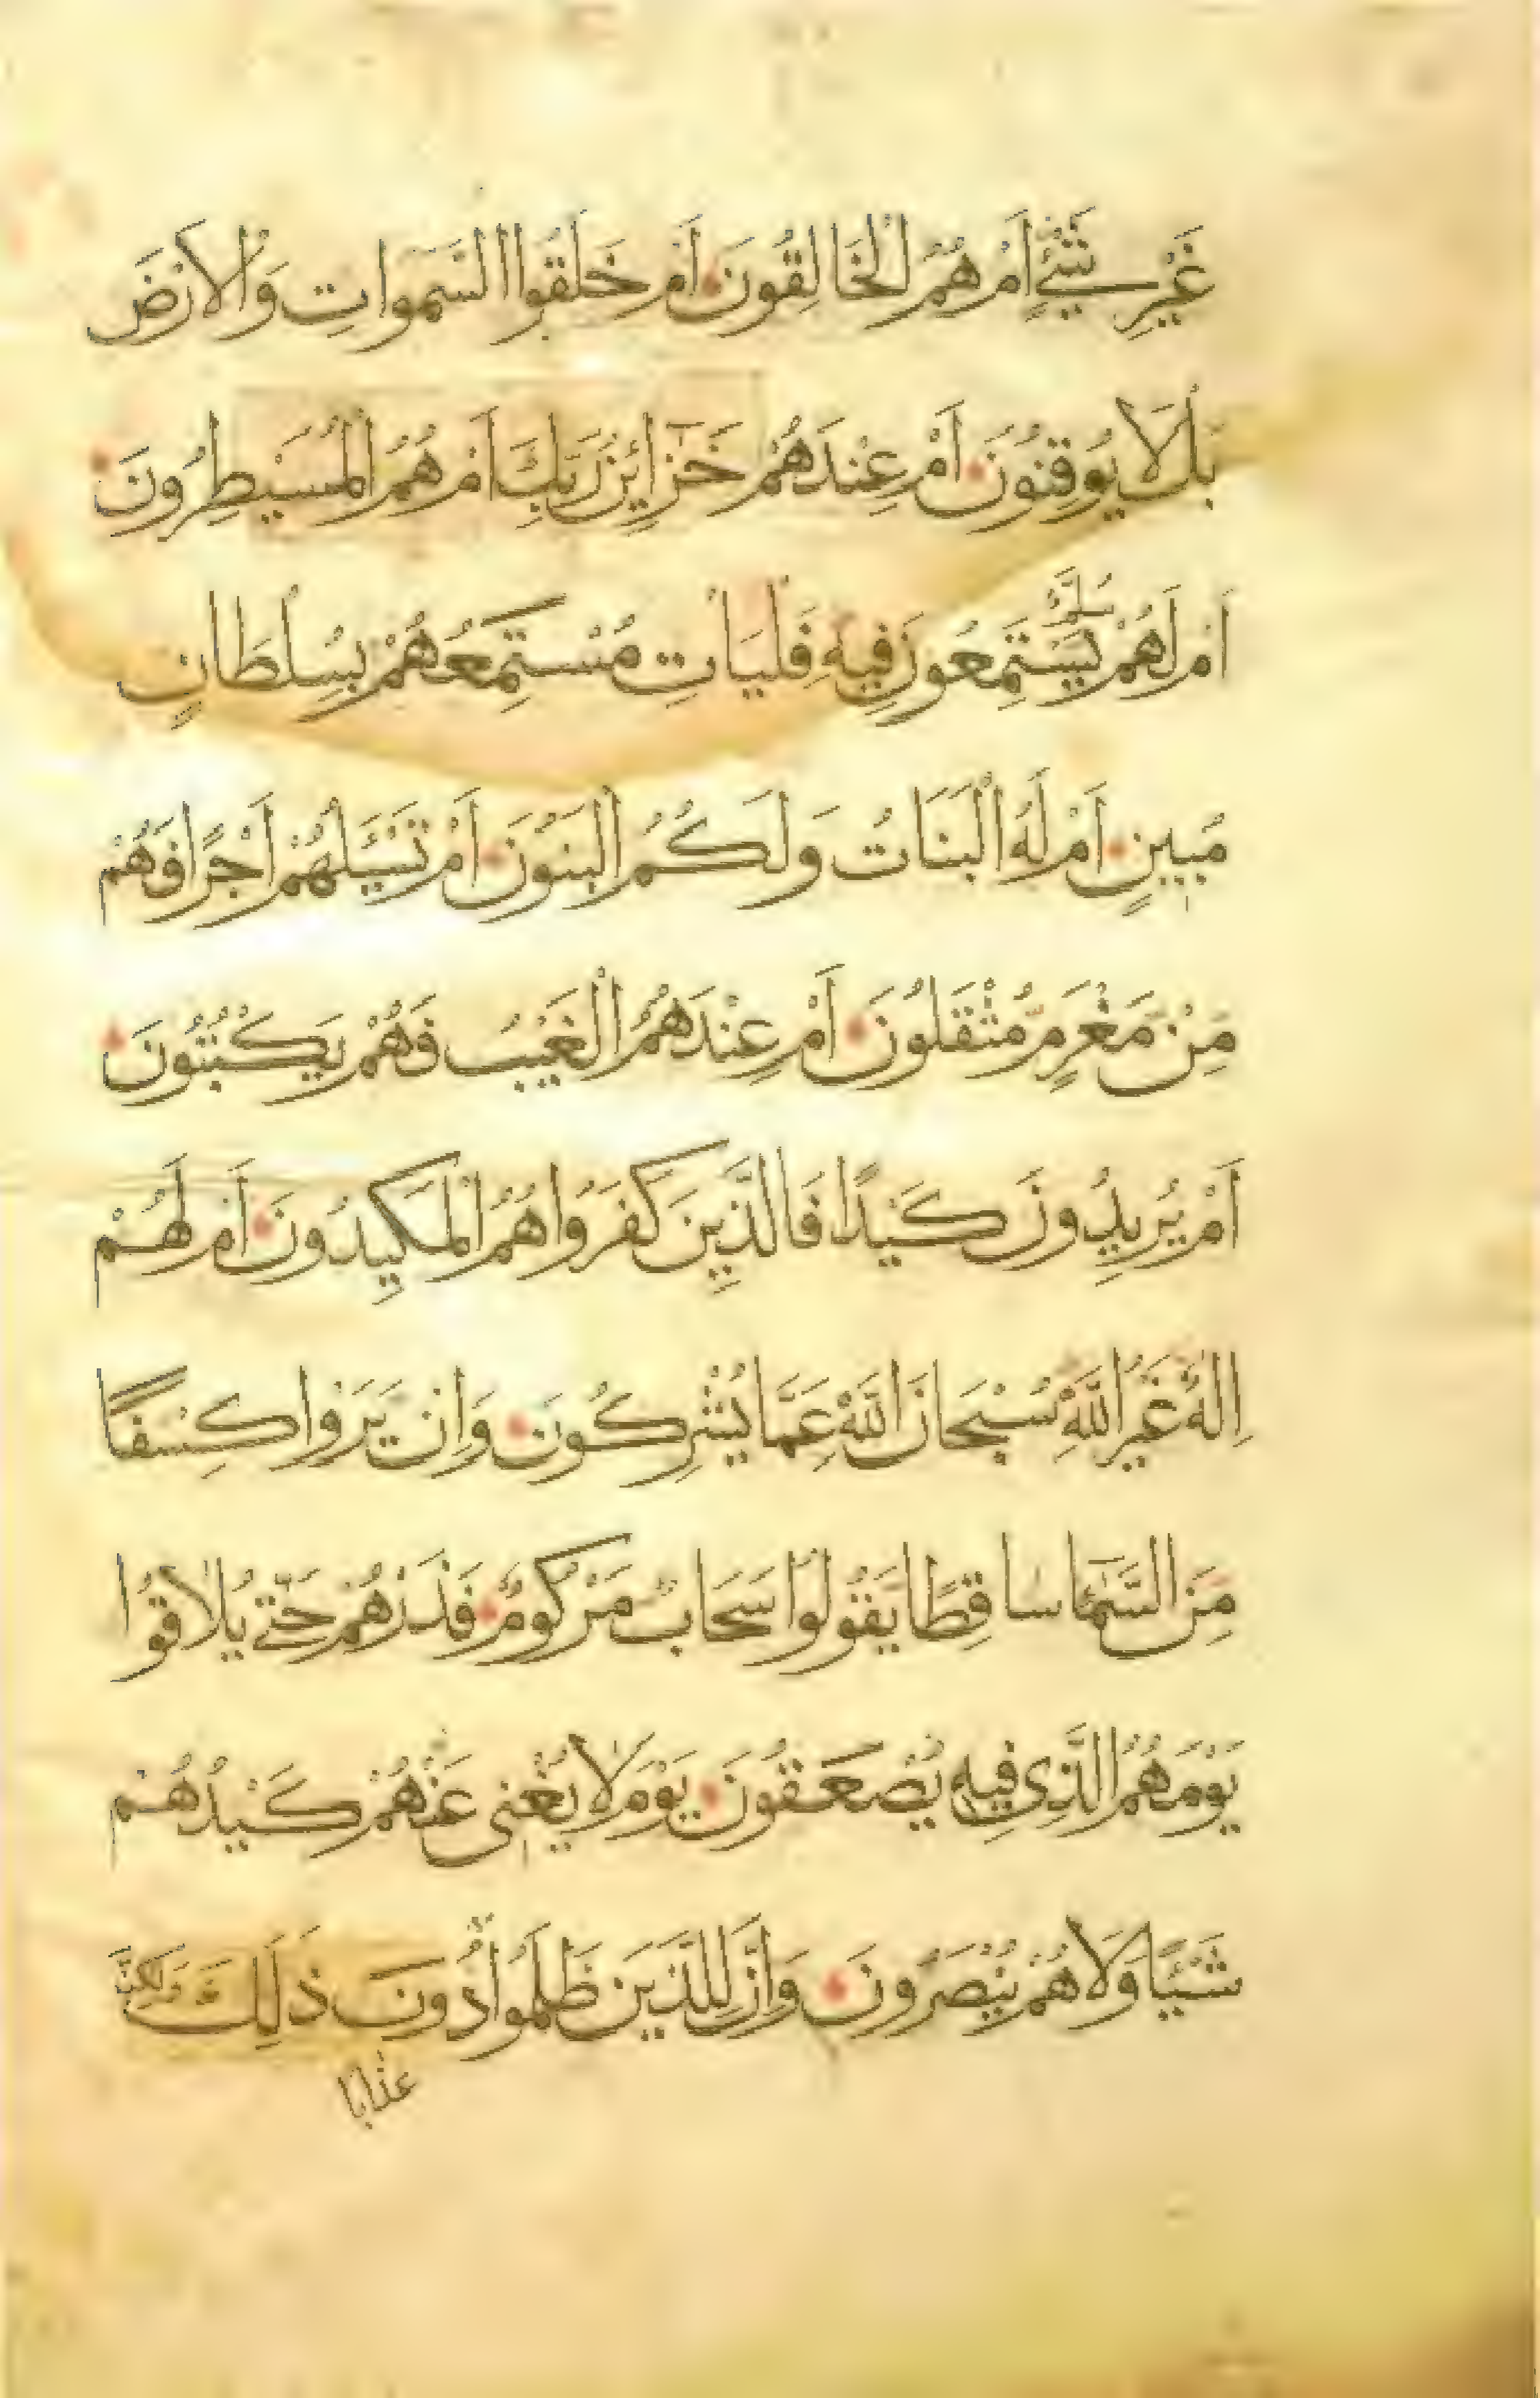 غَيْرِ شَيْءٍ أَمْ هُمُ الْخَالِقُونَ أَمْ خَلَقُوا السَّمَوَاتِ وَالْأَرْضَ
بَلْ لَا يُوقِنُونَ أَمْ عِنْدَهُمْ خَزَائِنُ رَبِّكَ أَمْ هُمُ الْمُسَيْطِرُونَ
أَمْ لَهُمْ سُلَّمٌ يَسْتَمِعُونَ فِيهِ فَلْيَأْتِ مُسْتَمِعُهُمْ بِسُلْطَانٍ
مُبِينٍ أَمْ لَهُ الْبَنَاتُ وَلَكُمُ الْبَنُونَ أَمْ تَسْئَلُهُمْ أَجْرًا فَهُمْ
مِنْ مَغْرَمٍ مُثْقَلُونَ أَمْ عِنْدَهُمُ الْغَيْبُ فَهُمْ يَكْتُبُونَ
أَمْ يُرِيدُونَ كَيْدًا فَالَّذِينَ كَفَرُوا هُمُ الْمَكِيدُونَ أَمْ لَهُمْ
إِلَهٌ غَيْرُ اللَّهِ سُبْحَانَ اللَّهِ عَمَّا يُشْرِكُونَ وَإِنْ يَرَوْا كِسْفًا
مِنَ السَّمَاءِ سَاقِطًا يَقُولُوا سَحَابٌ مَرْكُومٌ فَذَرْهُمْ حَتَّى يُلَاقُوا
يَوْمَهُمُ الَّذِي فِيهِ يُصْعَقُونَ يَوْمَ لَا يُغْنِي عَنْهُمْ كَيْدُهُمْ
شَيْئًا وَلَا هُمْ يُنْصَرُونَ وَإِنَّ لِلَّذِينَ ظَلَمُوا دُونَ ذَلِكَ وَلَكِنَّ
عَذَابًا